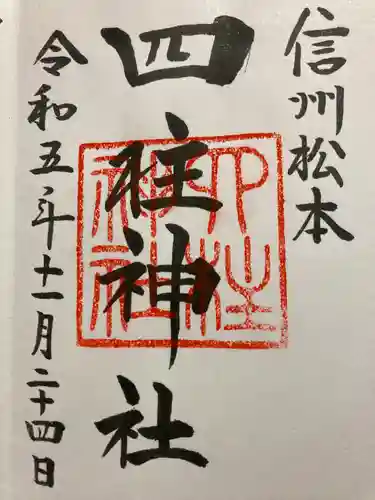 信州松本
四柱神社
令和五年十一月二十四日
四柱神社